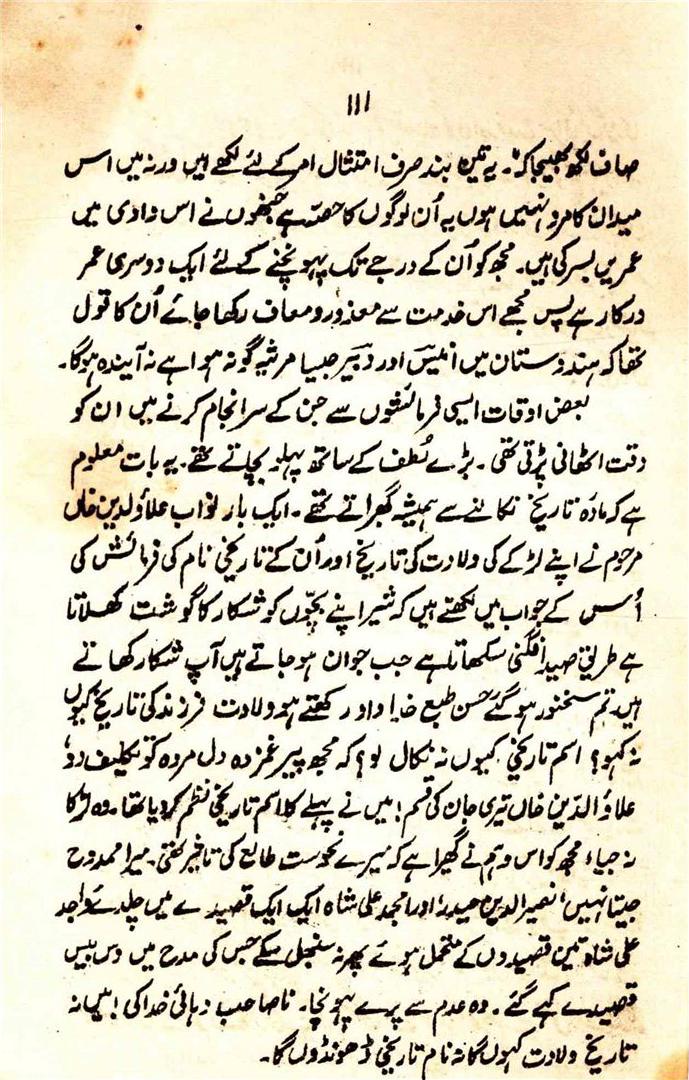 ۱۱۱
صاف لکھ بھیجا کہ "۔ یہ تین بند صرف امتثال امر کے لئے لکھے ہیں ورنہ میں اس
میدان کا مرد نہیں ہوں یہ اُن لوگوں کا حصہ ہے جنھوں نے اس وادی میں
عمریں بسر کی ہیں۔ مجھ کو اُن کے درجے تک پہونچنے کے لئے ایک دوسری عمر
درکار ہے پس مجھے اس خدمت سے معذور و معاف رکھا جائے اُن کا قول
تھا کہ ہندوستان میں انیس اور دبیر جیسا مرثیہ گو نہ ہوا ہے نہ آیندہ ہوگا۔
بعض اوقات ایسی فرمائشوں سے جن کے سرانجام کرنے میں ان کو
دقت اٹھانی پڑتی تھی۔ بڑے لُطف کے ساتھ پہلو بچاتے تھے۔ یہ بات معلوم
ہے کہ مادّہ تاریخ نکالنے سے ہمیشہ گھبراتے تھے۔ ایک بار نواب علاؤالدین خاں
مرحوم نے اپنے لڑکے کی ولادت کی تاریخ اور اُن کے تاریخی نام کی فرمائش کی
اُس کے جواب میں لکھتے ہیں کہ شیر اپنے بچّوں کو شکار کا گوشت کھلاتا
ہے طریق صید افگنی سکھاتا ہے جب جوان ہو جاتے ہیں آپ شکار کھاتے
ہیں تم سخنور ہو گئے حسن طبع خداداد رکھتے ہو ولادت فرزند کی تاریخ کیوں
نہ کہو؟ اسم تاریخی کیوں نہ نکال لو؟ کہ مجھ پیر غمزدہ دل مردہ کو تکلیف دو،
علاؤالدّین خاں تیری جان کی قسم! میں نے پہلے کا اسم تاریخی نظم کر دیا تھا۔ وہ لڑکا
نہ جیا، مجھ کو اس وہم نے گھیرا ہے کہ میرے نحوست طالع کی تاثیر تھی۔ میرا ممدوح
جیتا نہیں نصیر الدین حیدر اور امجد علی شاہ ایک ایک قصیدے میں چلدئے واجد
علی شاہ تین قصیدوں کے متحمل ہوئے پھر نہ سنبھل سکے جس کی مدح میں دس بیس
قصیدے کہے گئے۔ وہ عدم سے پرے پہونچا۔ نا صاحب دہائی خدا کی! میں نہ
تاریخ ولادت کہوں گا نہ نام تاریخی ڈھونڈوں گا۔